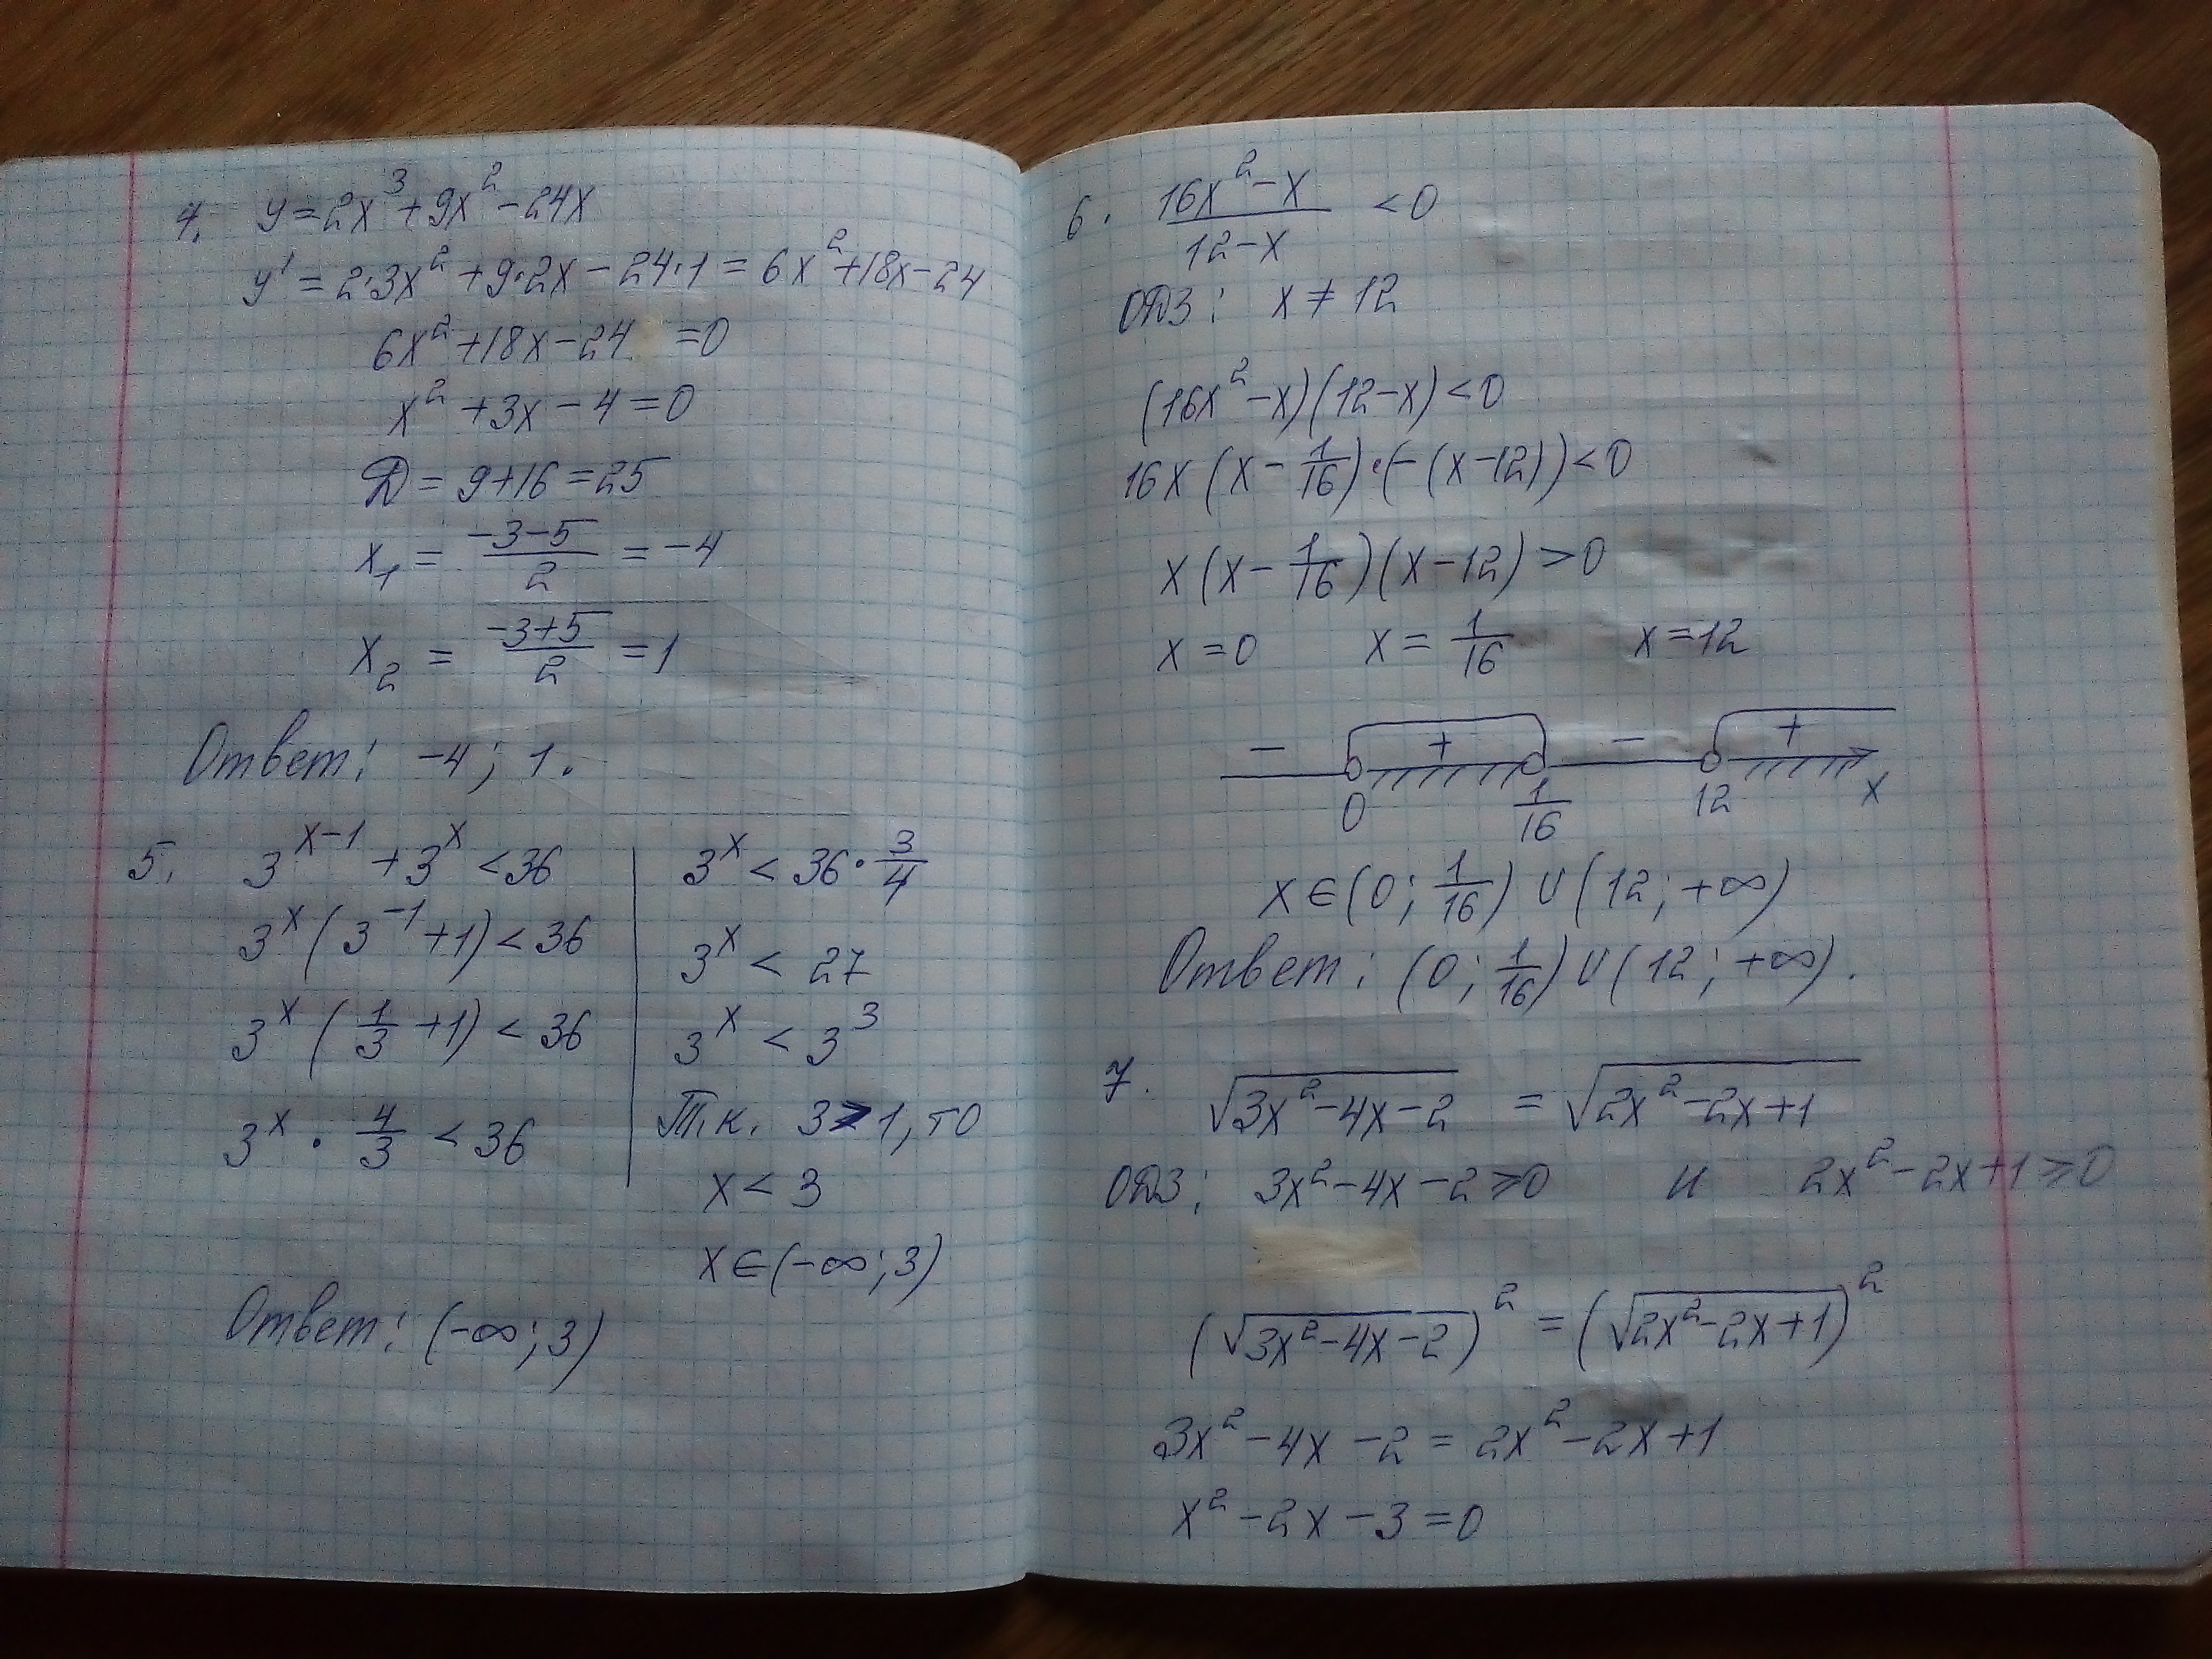 4. y=2x³+9x²-24x
y'=2·3x²+9·2x-24·1=6x²+18x-24
6x²+18x-24 =0
x²+3x-4=0
D=9+16=25
x₁ = (-3-5)/2 = -4
x₂ = (-3+5)/2 = 1
Ответ: -4; 1.
5. 3^(x-1) + 3^x < 36
3^x (3^(-1) + 1) < 36
3^x (1/3 + 1) < 36
3^x · 4/3 < 36
3^x < 36 · 3/4
3^x < 27
3^x < 3³
Т.к. 3>1, то
x < 3
x∈(-∞; 3)
Ответ: (-∞; 3)
6. (16x²-x)/(12-x) < 0
ОДЗ: x ≠ 12
(16x²-x)(12-x)<0
16x(x - 1/16)·(-(x-12))<0
x(x - 1/16)(x-12)>0
x=0 x = 1/16 x=12
- + - +
0 1/16 12 x
x∈(0; 1/16) ∪ (12; +∞)
Ответ: (0; 1/16) ∪ (12; +∞).
7. √(3x²-4x-2) = √(2x²-2x+1)
ОДЗ: 3x²-4x-2≥0 и 2x²-2x+1≥0
(√(3x²-4x-2))² = (√(2x²-2x+1))²
3x²-4x-2 = 2x²-2x+1
x²-2x-3=0